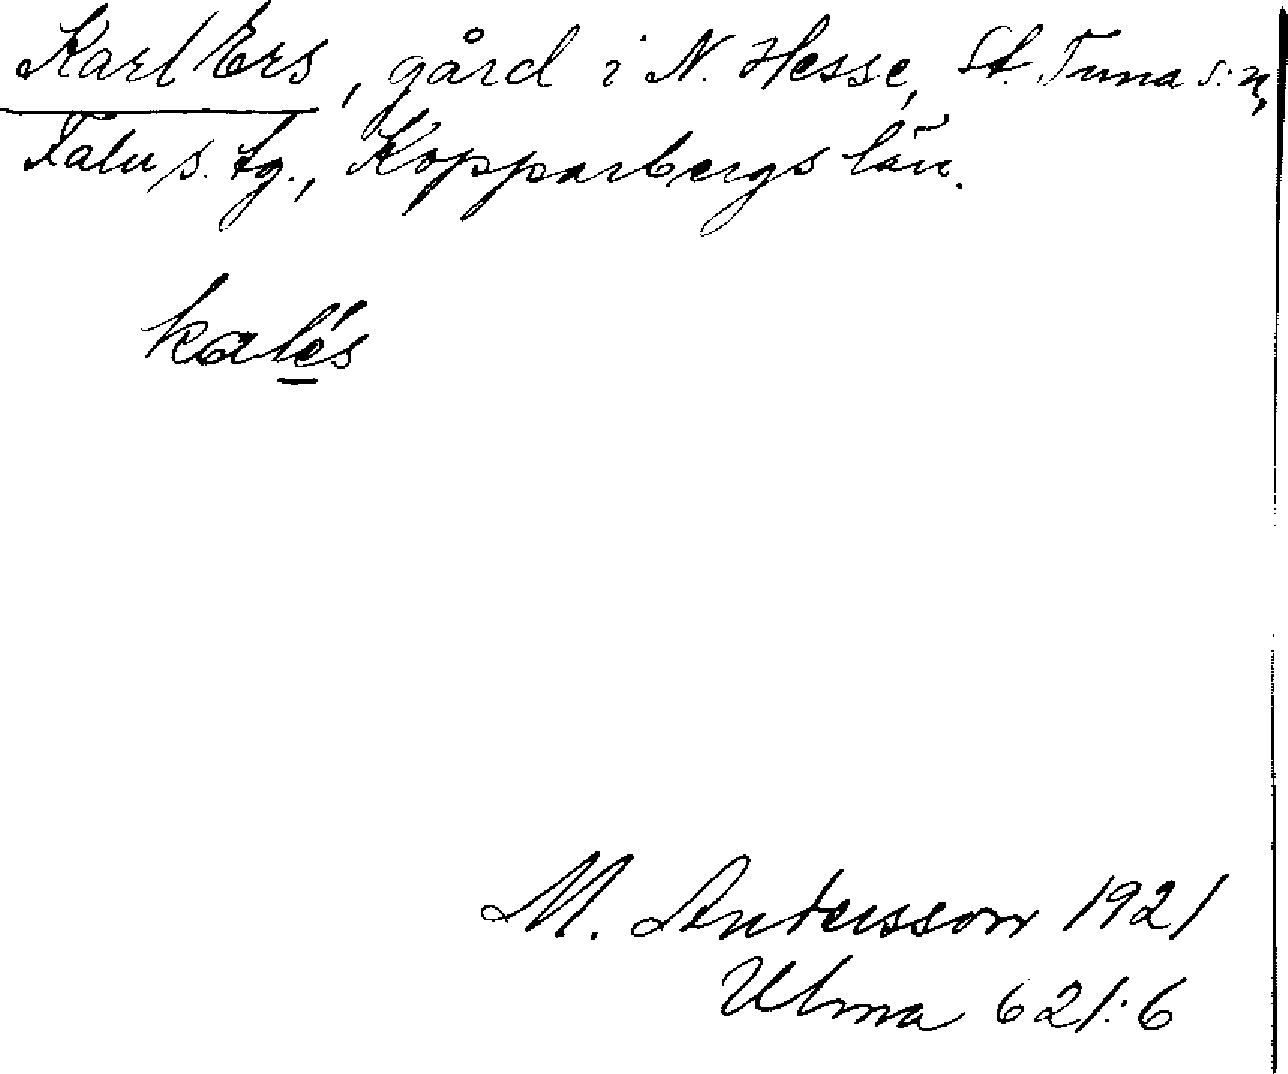 Karl Ers, gård i N. Hesse, St. Tuna s:n,
Falu s. tg., Kopparbergs län.
kalés
M. Andersson 1921
Ulma 621:6